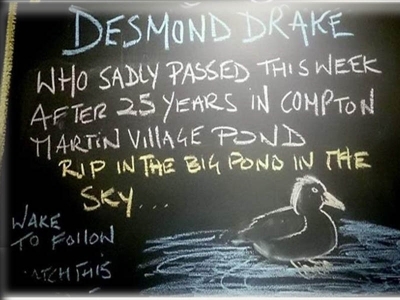 DESMOND DRAKE
WHO SADLY PASSED THIS WEEK
AFTER 25 YEARS IN COMPTON
MARTIN VILLAGE POND
RIP IN THE BIG POND IN THE
SKY...
WAKE
TO FOLLOW
THIS